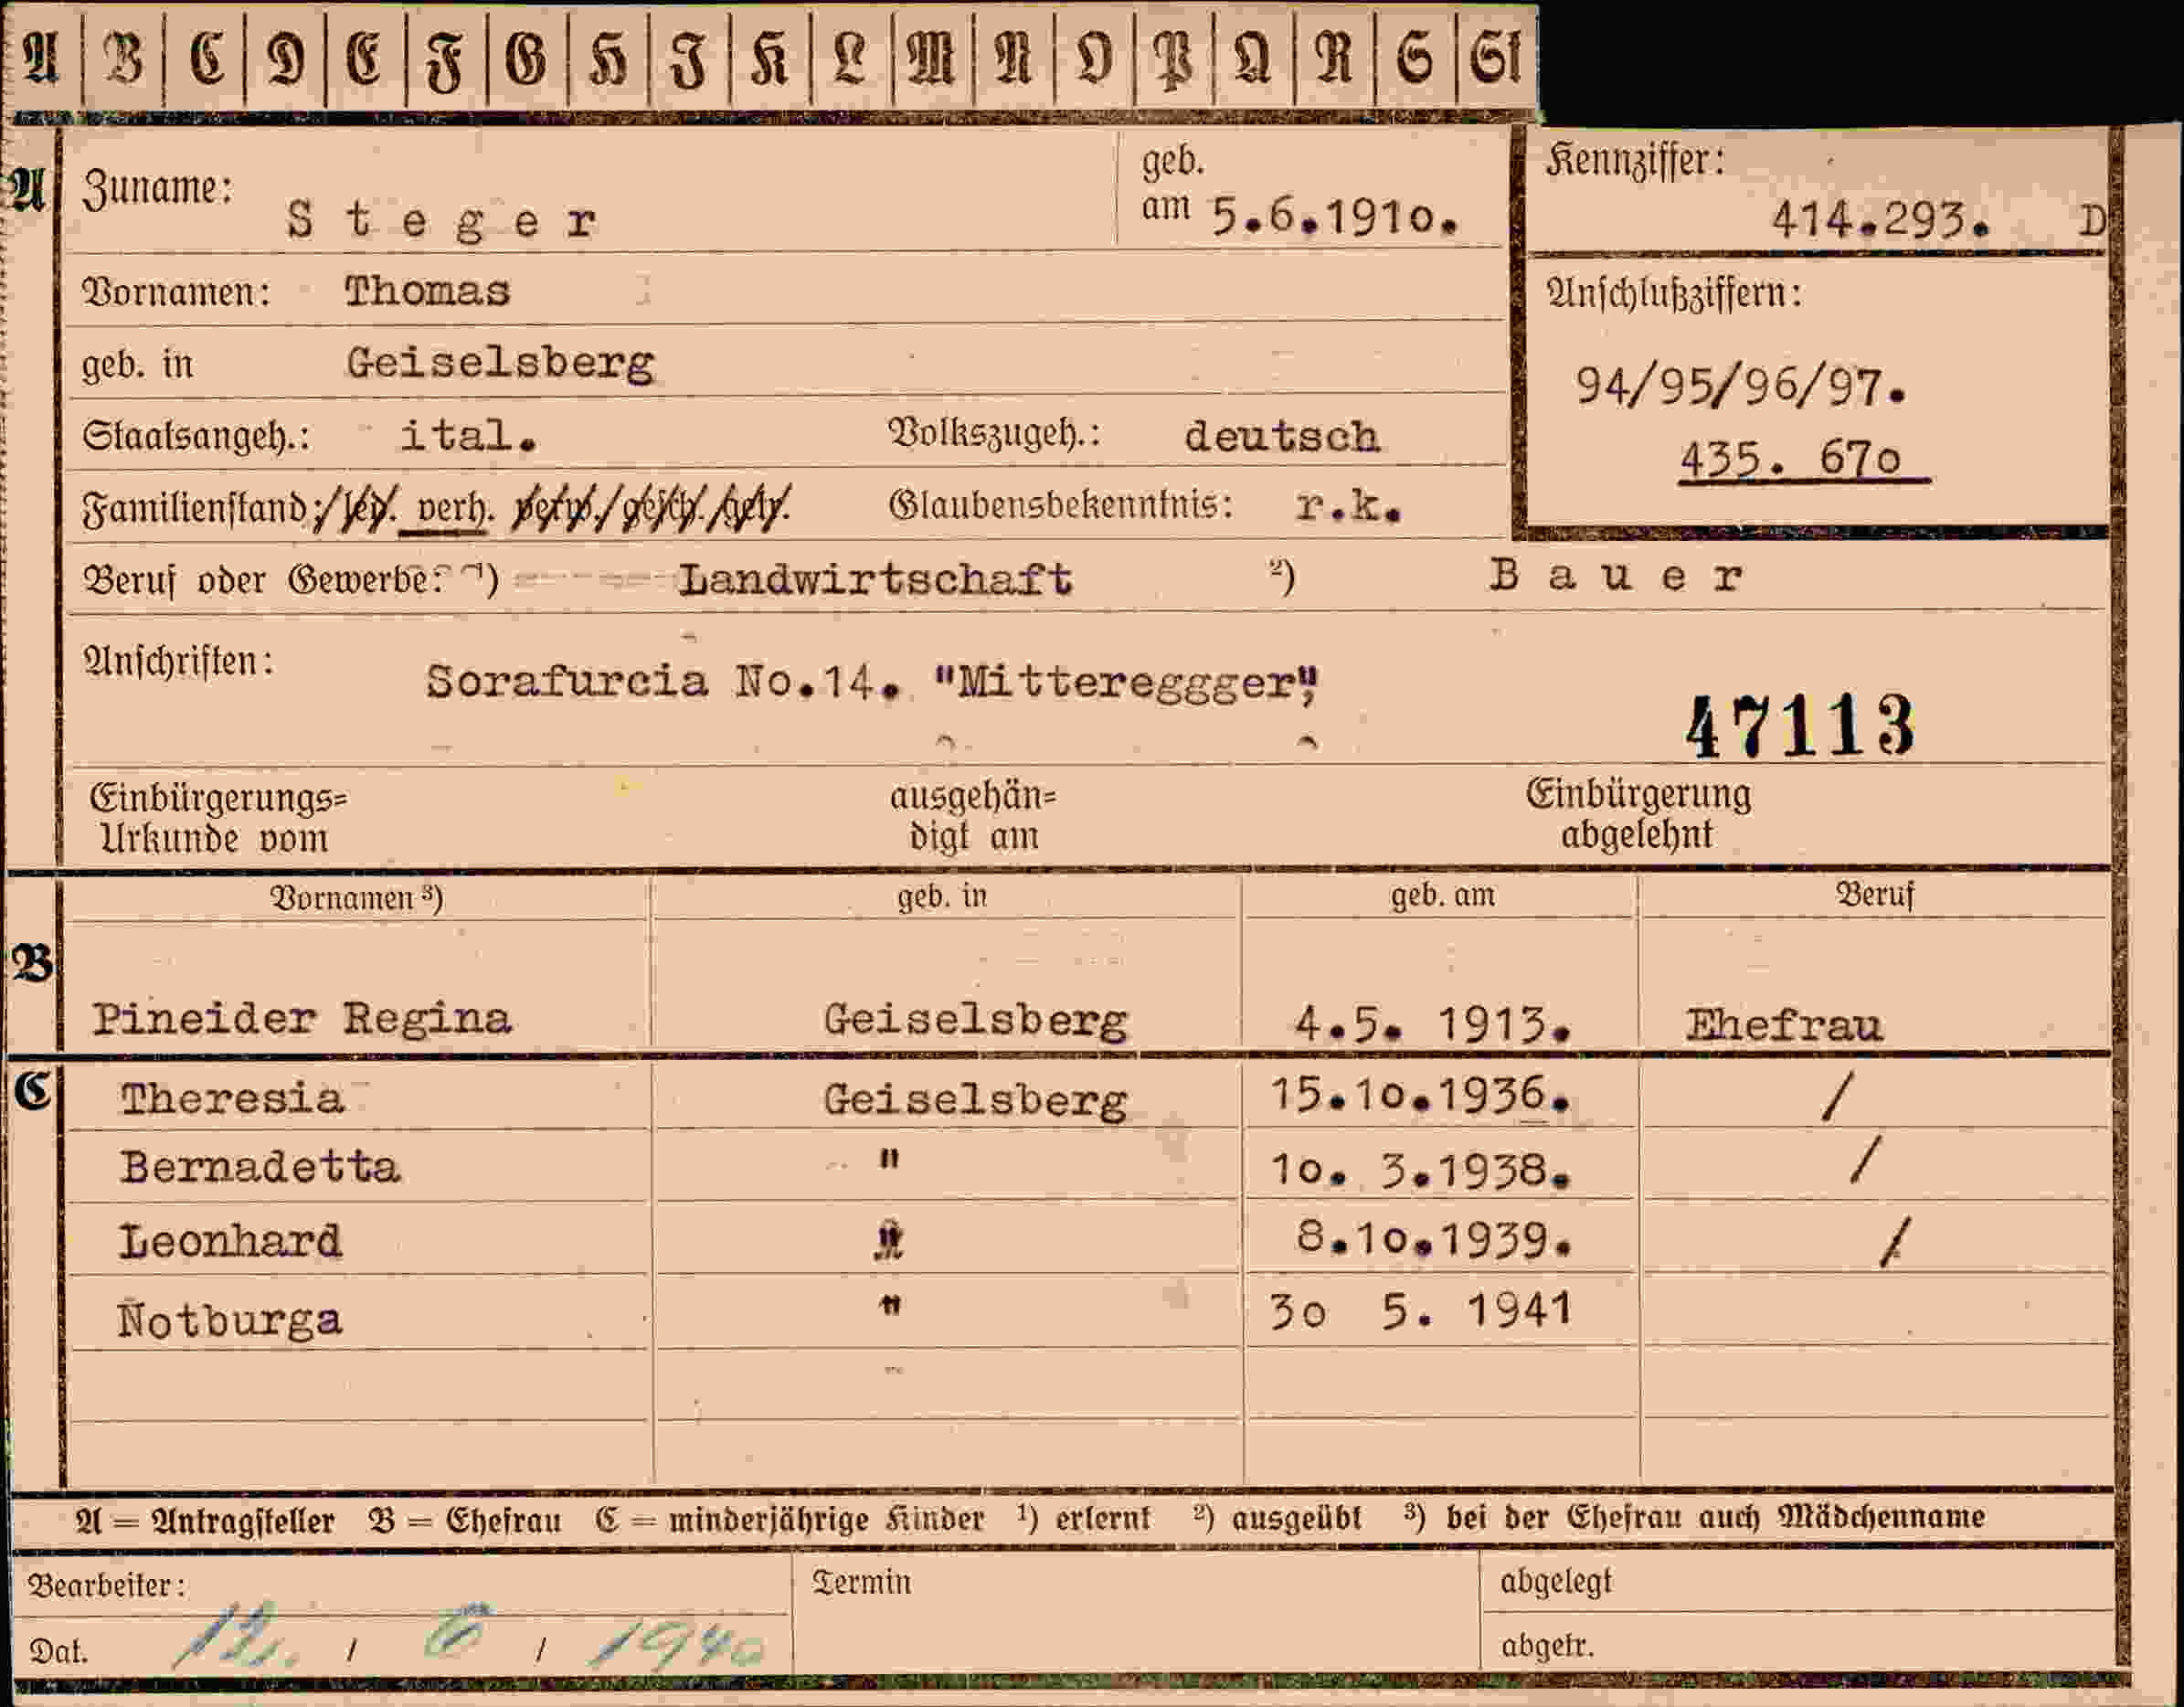 A B C D E F G H I K L M N O P Q R S St
A Zuname: Steger geb. am 5.6.1910. Kennziffer: 414.293. D
Vornamen: Thomas Anschlußziffern:
geb. in Geiselsberg 94/95/96/97.
Staatsangeh.: ital. Volkszugeh.: deutsch 435. 670
Familienstand: led. verh. verw. gesch. getr. Glaubensbekenntnis: r.k.
Beruf oder Gewerbe: 1) Landwirtschaft 2) Bauer
Anschriften: Sorafurcia No.14. "Mittereggger",
47113
Einbürgerungs= ausgehän= Einbürgerung
Urkunde vom digt am abgelehnt
Vornamen 3) geb. in geb. am Beruf
B
Pineider Regina Geiselsberg 4.5. 1913. Ehefrau
C Theresia Geiselsberg 15.10.1936. /
Bernadetta " 10. 3.1938. /
Leonhard " 8.10.1939. /
Notburga " 30 5. 1941
A = Antragsteller B = Ehefrau C = minderjährige Kinder 1) erlernt 2) ausgeübt 3) bei der Ehefrau auch Mädchenname
Bearbeiter: Termin abgelegt
Dat. 12. / 6 / 1940 abgetr.